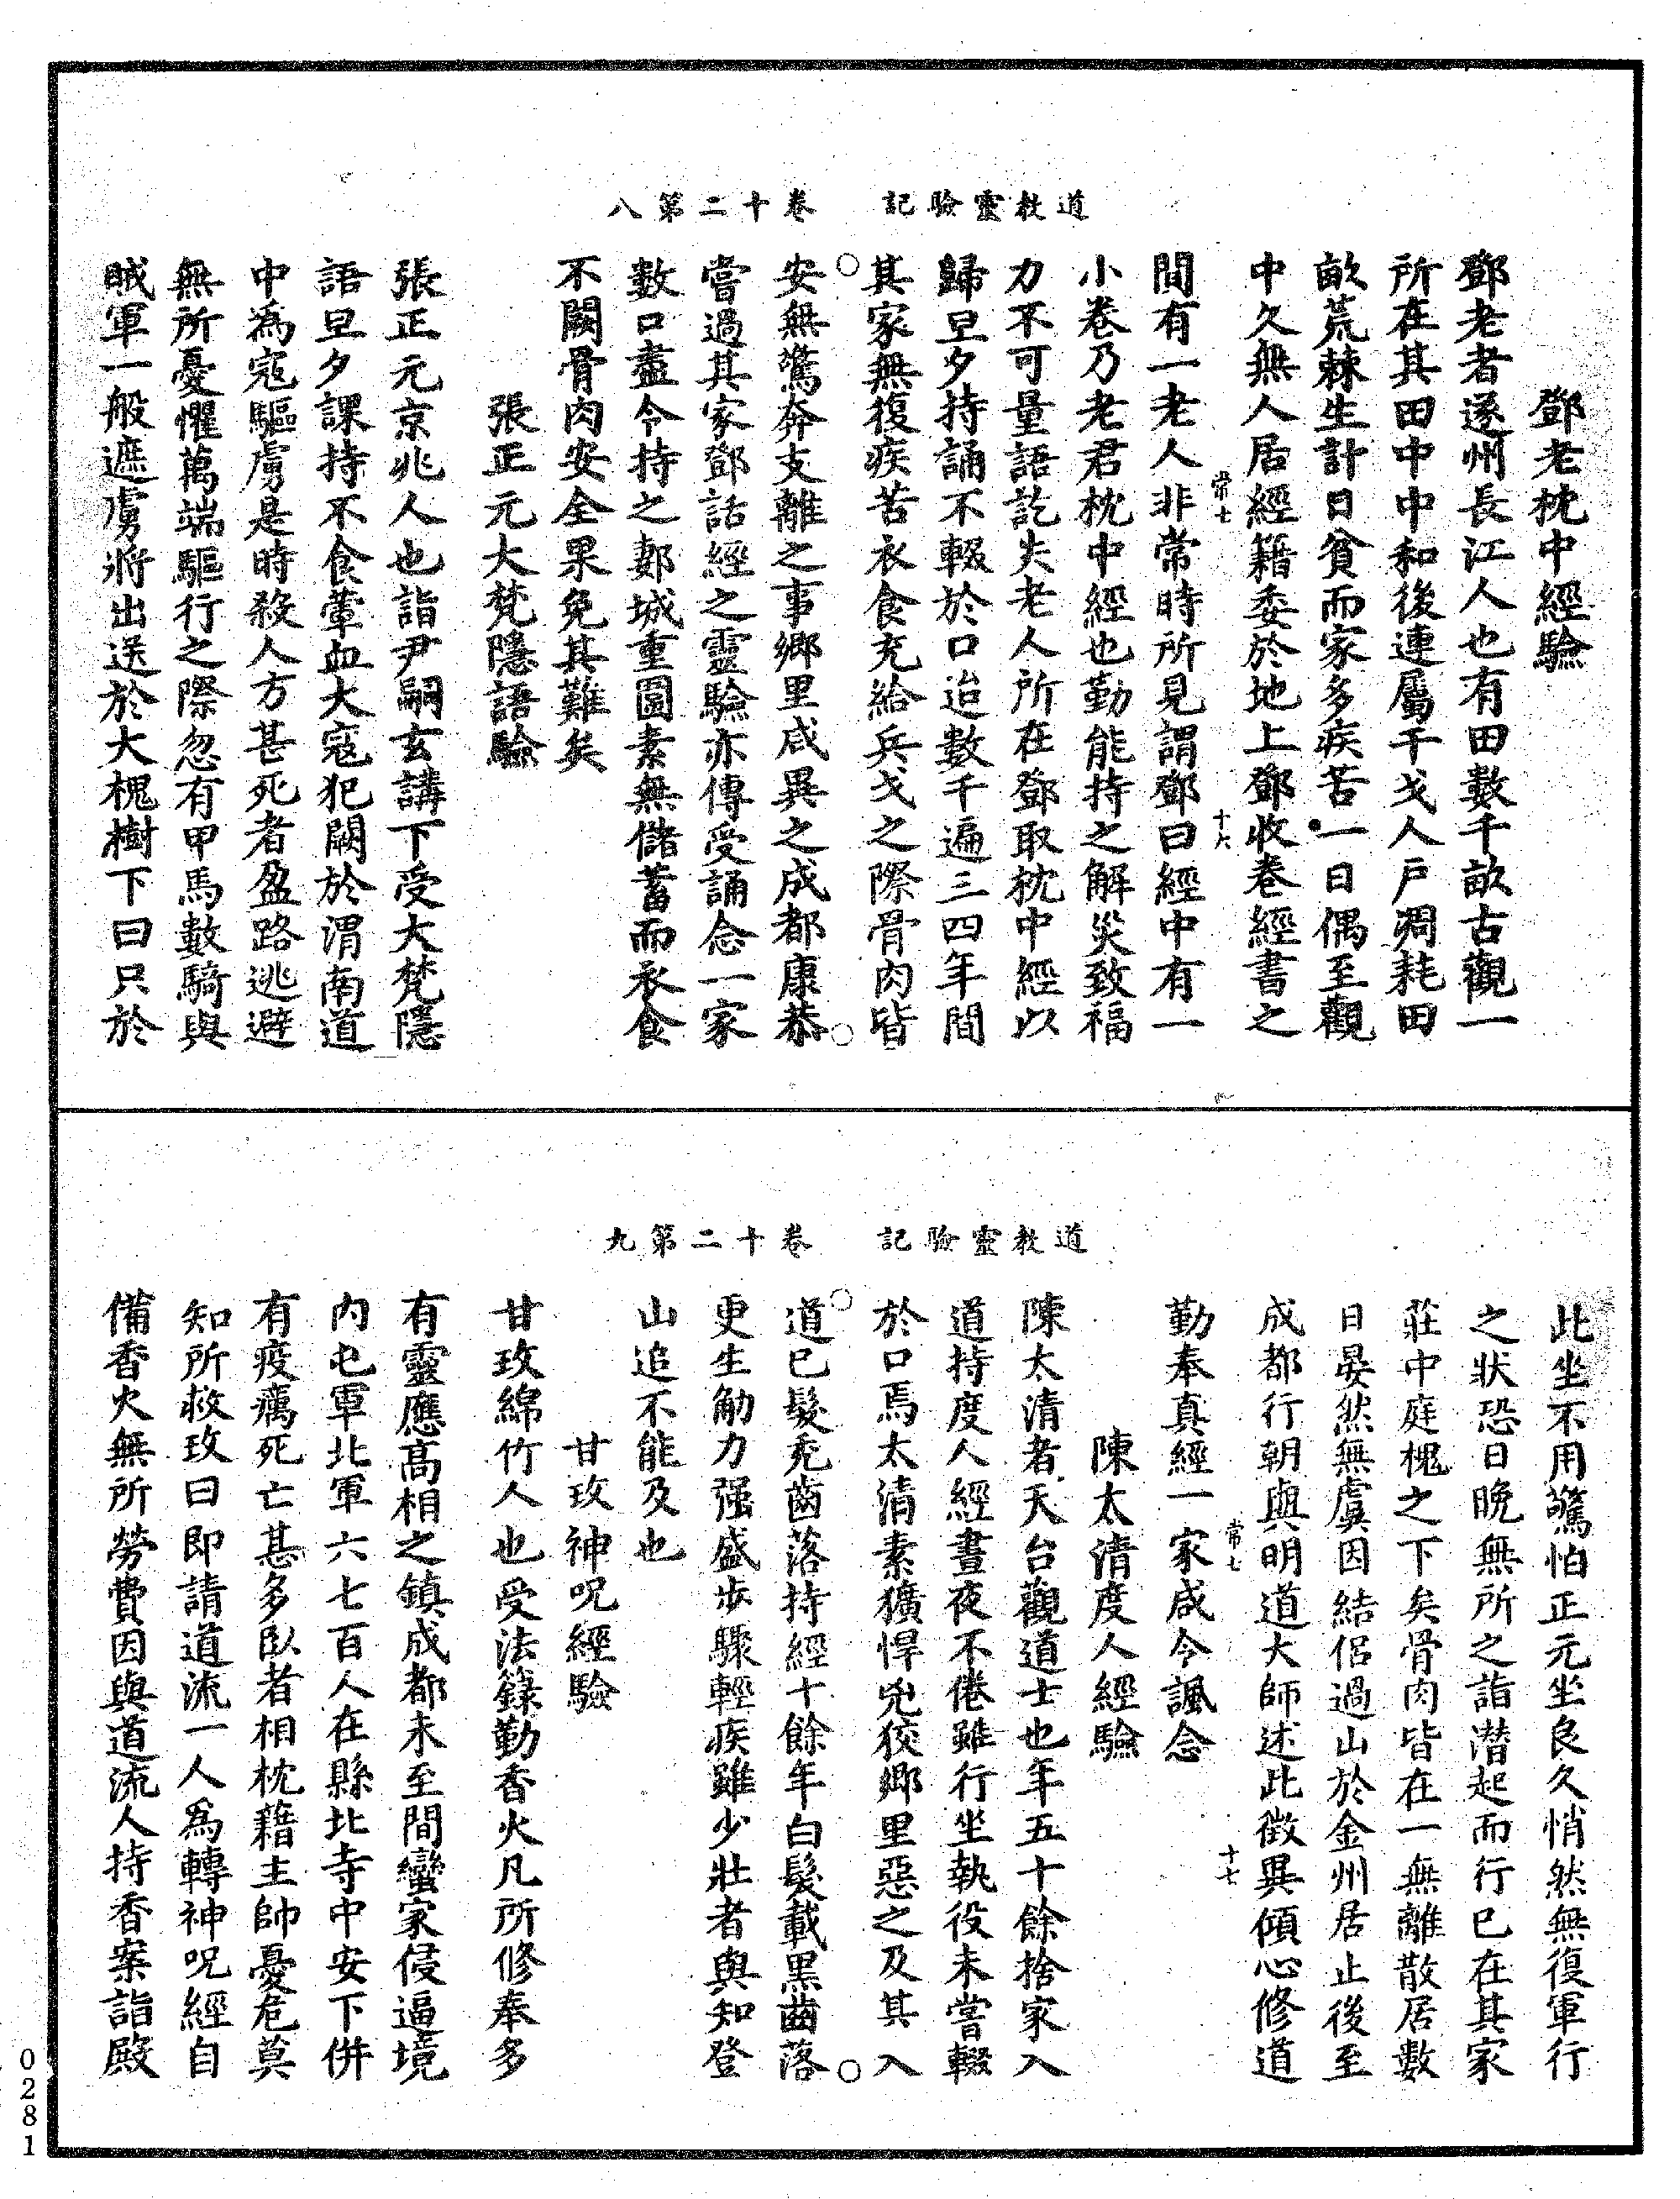 道教靈驗記　卷十二第八
鄧老枕中經驗
鄧老者遂州長江人也有田數千畝古觀一
所在其田中中和後連屬干戈人戶凋耗田
畝荒棘生計日貧而家多疾苦一日偶至觀
中久無人居經籍委於地上鄧收卷經書之
常七　十六
間有一老人非常時所見謂鄧曰經中有一
小卷乃老君枕中經也勤能持之解災致福
力不可量語訖失老人所在鄧取枕中經以
歸旦夕持誦不輟於口迨數千遍三四年間
其家無復疾苦衣食充給兵戈之際骨肉皆
安無驚奔支離之事鄉里咸異之成都康恭
嘗過其家鄧話經之靈驗亦傳受誦念一家
數口盡令持之鄴城重圍素無儲蓄而衣食
不闕骨肉安全果免其難矣
張正元大梵隱語驗
張正元京兆人也詣尹嗣玄講下受大梵隱
語旦夕課持不食葷血大寇犯闕於渭南道
中為寇驅虜是時殺人方甚死者盈路逃避
無所憂懼萬端驅行之際忽有甲馬數騎與
賊軍一般遮虜將出送於大槐樹下曰只於
道教靈驗記　卷十二第九
此坐不用驚怕正元坐良久悄然無復軍行
之狀恐日晚無所之詣潛起而行已在其家
莊中庭槐之下矣骨肉皆在一無離散居數
日晏然無虞因結侶過山於金州居止後至
成都行朝與明道大師述此徵異傾心修道
常七　十七
勤奉真經一家咸令諷念
陳太清度人經驗
陳太清者天台觀道士也年五十餘捨家入
道持度人經晝夜不倦雖行坐執役未嘗輟
於口焉太清素獷悍兇狡鄉里惡之及其入
道已髮禿齒落持經十餘年白髮載黑齒落
更生觔力强盛步驟輕疾雖少壯者與知登
山追不能及也
甘玫神呪經驗
甘玫綿竹人也受法籙勤香火凡所修奉多
有靈應高相之鎮成都未至間蠻家侵逼境
內屯軍北軍六七百人在縣北寺中安下併
有疫癘死亡甚多臥者相枕藉主帥憂危莫
知所救玫曰即請道流一人為轉神呪經自
備香火無所勞費因與道流人持香案詣殿
0281